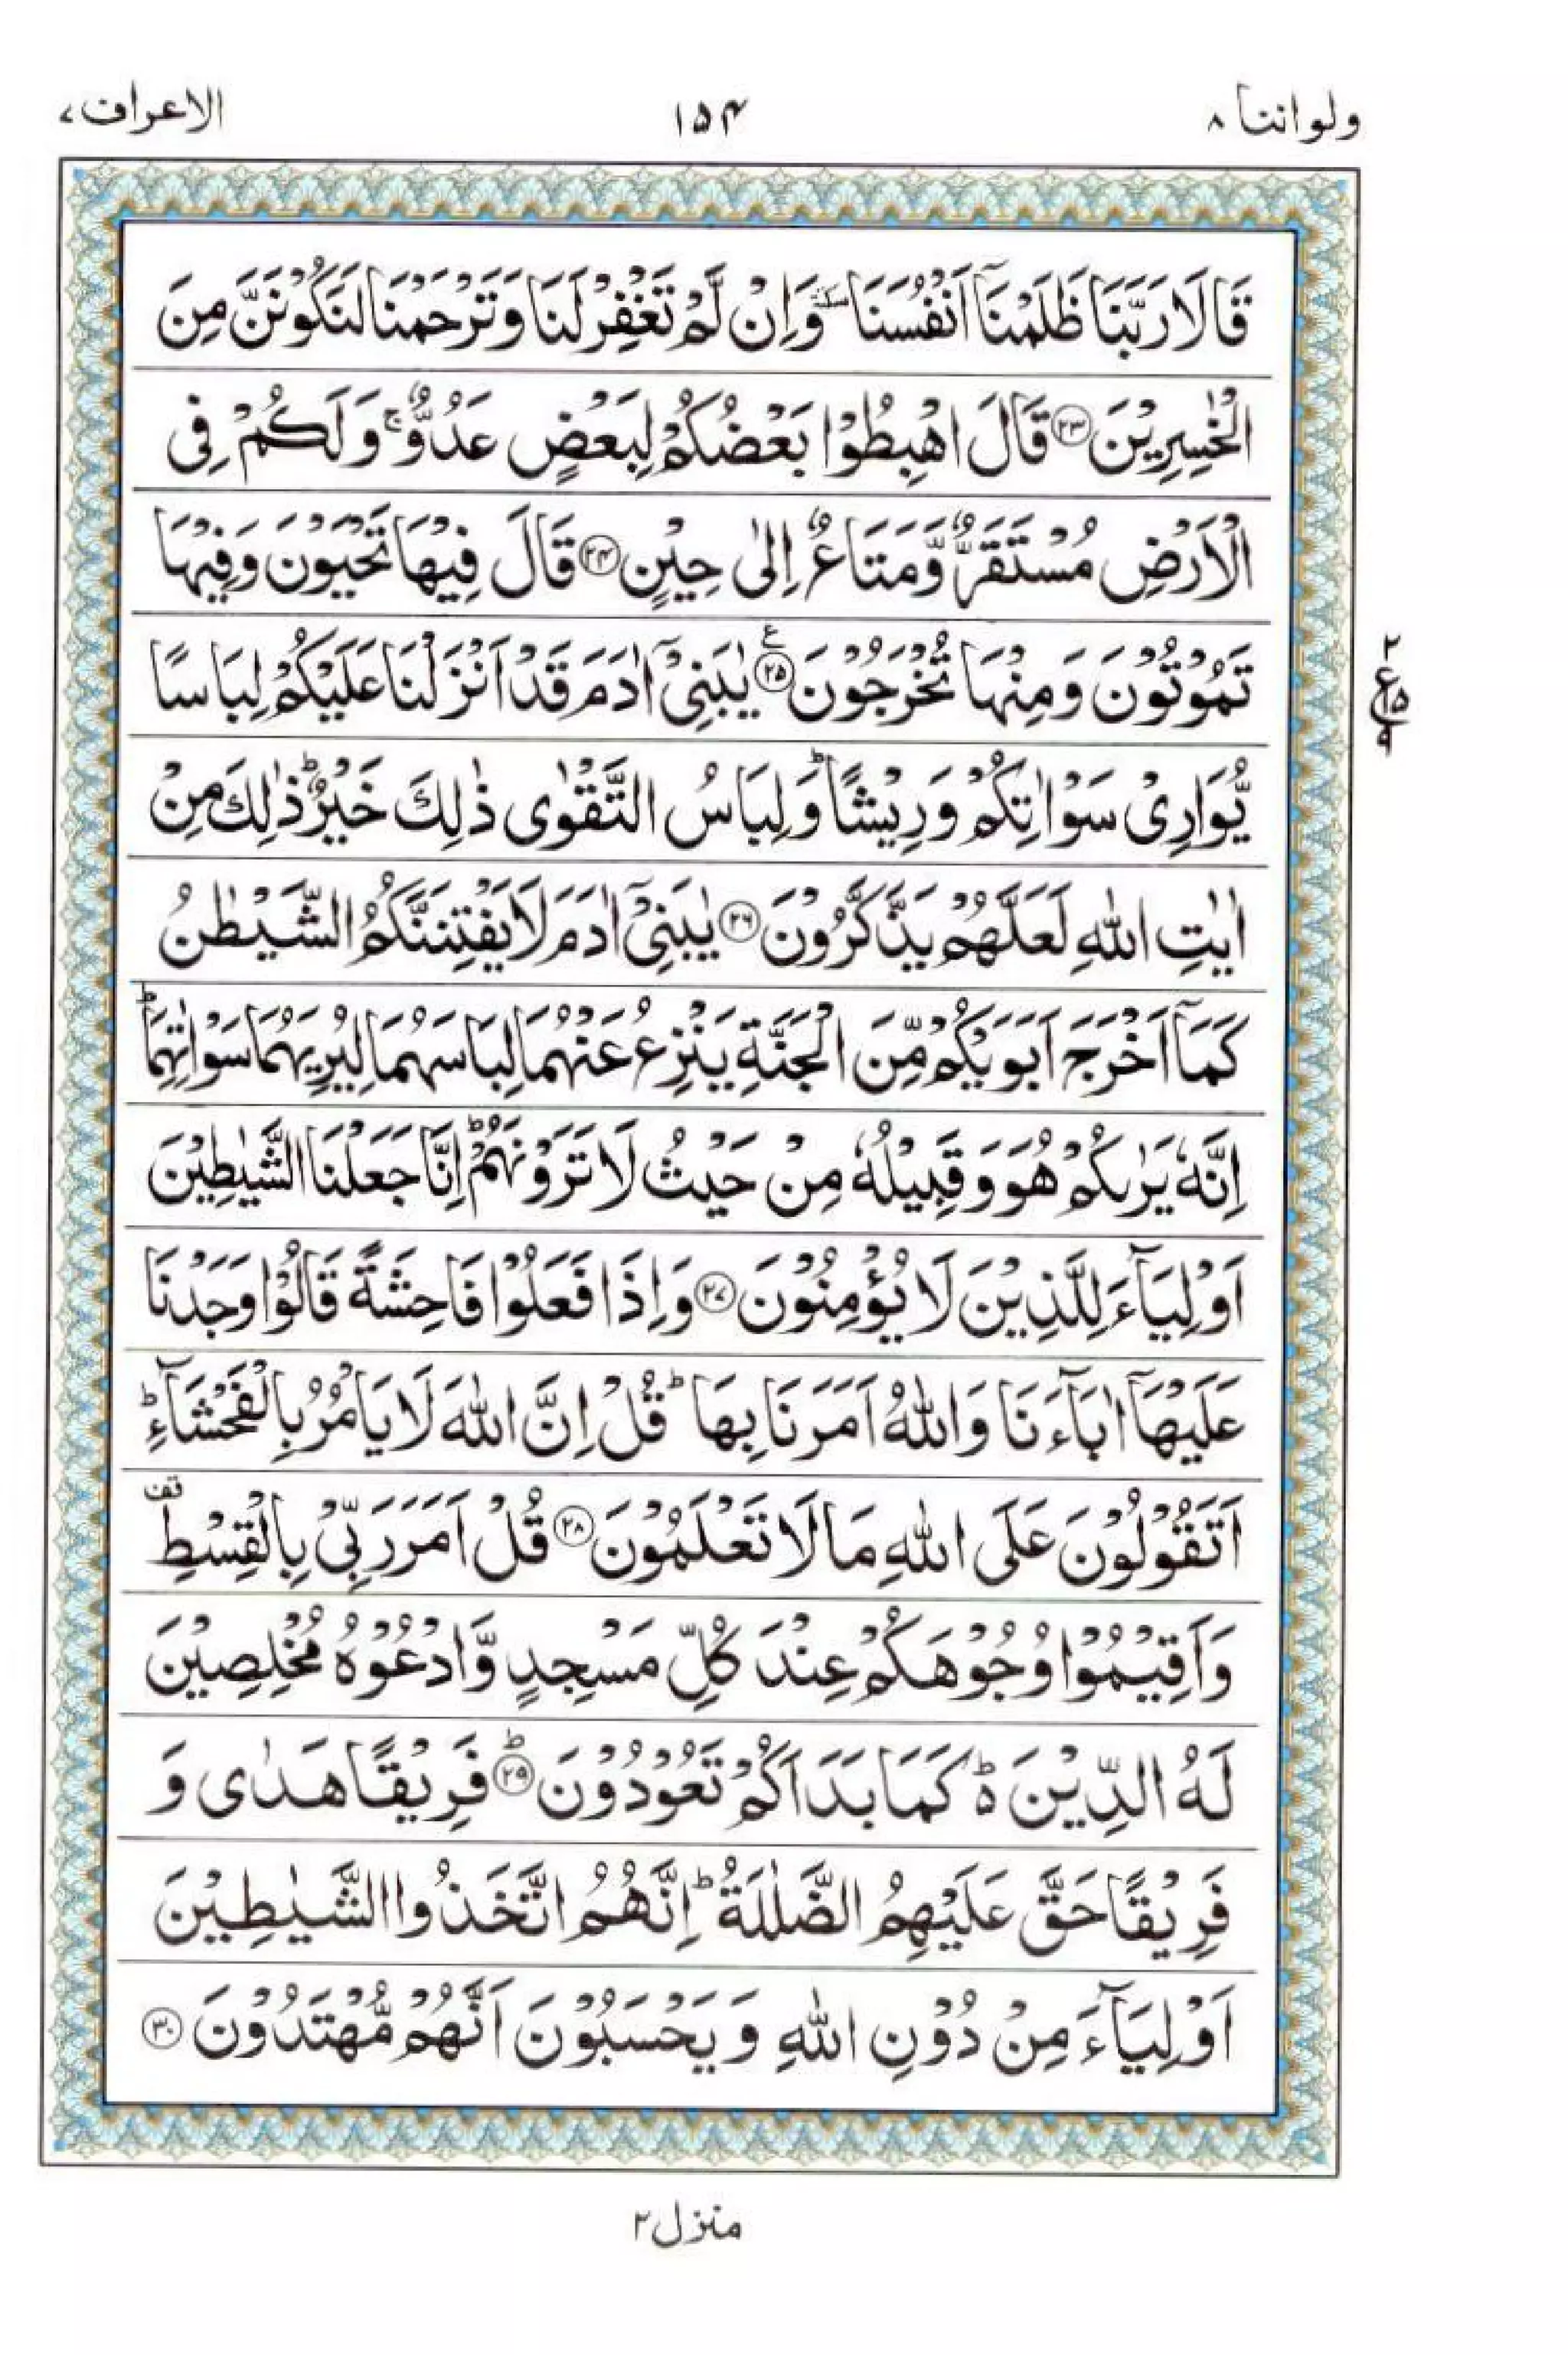 ولواننا ٨
١٥۴
الاعراف ٧
قَالَا رَبَّنَا ظَلَمْنَآ اَنْفُسَنَا ٚ وَاِنْ لَّمْ تَغْفِرْ لَنَا وَتَرْحَمْنَا لَنَكُوْنَنَّ مِنَ
الْخٰسِرِيْنَ ﴿٢٣﴾ قَالَ اهْبِطُوْا بَعْضُكُمْ لِبَعْضٍ عَدُوٌّ ۚ وَلَكُمْ فِى
الْاَرْضِ مُسْتَقَرٌّ وَّمَتَاعٌ اِلٰى حِيْنٍ ﴿٢۴﴾ قَالَ فِيْهَا تَحْيَوْنَ وَفِيْهَا
تَمُوْتُوْنَ وَمِنْهَا تُخْرَجُوْنَ ﴿٢۵﴾ ع يٰبَنِىْٓ اٰدَمَ قَدْ اَنْزَلْنَا عَلَيْكُمْ لِبَاسًا
٢
ع ١۵
٩
يُّوَارِىْ سَوْاٰتِكُمْ وَرِيْشًا ؕ وَلِبَاسُ التَّقْوٰى ذٰلِكَ خَيْرٌ ؕ ذٰلِكَ مِنْ
اٰيٰتِ اللّٰهِ لَعَلَّهُمْ يَذَّكَّرُوْنَ ﴿٢٦﴾ يٰبَنِىْٓ اٰدَمَ لَا يَفْتِنَنَّكُمُ الشَّيْطٰنُ
كَمَآ اَخْرَجَ اَبَوَيْكُمْ مِّنَ الْجَنَّةِ يَنْزِعُ عَنْهُمَا لِبَاسَهُمَا لِيُرِيَهُمَا سَوْاٰتِهِمَا ؕ
اِنَّهٗ يَرٰىكُمْ هُوَ وَقَبِيْلُهٗ مِنْ حَيْثُ لَا تَرَوْنَهُمْ ؕ اِنَّا جَعَلْنَا الشَّيٰطِيْنَ
اَوْلِيَآءَ لِلَّذِيْنَ لَا يُؤْمِنُوْنَ ﴿٢٧﴾ وَاِذَا فَعَلُوْا فَاحِشَةً قَالُوْا وَجَدْنَا
عَلَيْهَآ اٰبَآءَنَا وَاللّٰهُ اَمَرَنَا بِهَا ؕ قُلْ اِنَّ اللّٰهَ لَا يَاْمُرُ بِالْفَحْشَآءِ ؕ
اَتَقُوْلُوْنَ عَلَى اللّٰهِ مَا لَا تَعْلَمُوْنَ ﴿٢٨﴾ قُلْ اَمَرَ رَبِّىْ بِالْقِسْطِ قف
وَاَقِيْمُوْا وُجُوْهَكُمْ عِنْدَ كُلِّ مَسْجِدٍ وَّادْعُوْهُ مُخْلِصِيْنَ
لَهُ الدِّيْنَ ۬ؕ كَمَا بَدَاَكُمْ تَعُوْدُوْنَ ﴿٢٩﴾ؕ فَرِيْقًا هَدٰى وَ
فَرِيْقًا حَقَّ عَلَيْهِمُ الضَّلٰلَةُ ؕ اِنَّهُمُ اتَّخَذُوا الشَّيٰطِيْنَ
اَوْلِيَآءَ مِنْ دُوْنِ اللّٰهِ وَيَحْسَبُوْنَ اَنَّهُمْ مُّهْتَدُوْنَ ﴿٣٠﴾
منزل ٢